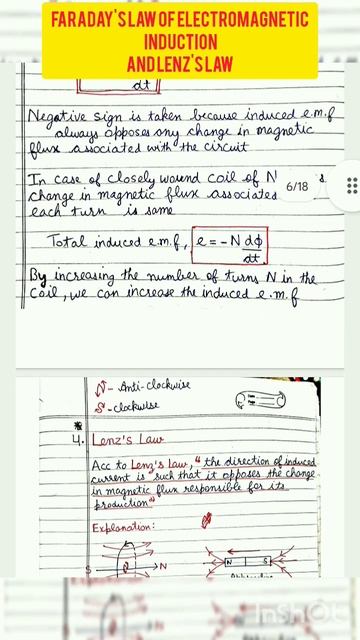 FARADAY'S LAW OF ELECTROMAGNETIC
INDUCTION
AND LENZ'S LAW
dt
Negative sign is taken because induced e.m.f
always opposes any change in magnetic
flux associated with the circuit
In case of closely wound coil of N s.
6/18
change in magnetic flux associated
each turn is same
Total induced e.m.f, e = -N dϕ
dt
By increasing the number of turns N in the
coil, we can increase the induced e.m.f
N - Anti-clockwise
S - clockwise
4. Lenz's Law
Acc to Lenz's Law, " the direction of induced
current is such that it opposes the change
in magnetic flux responsible for its
production"
Explanation:
S N N S
InShOt